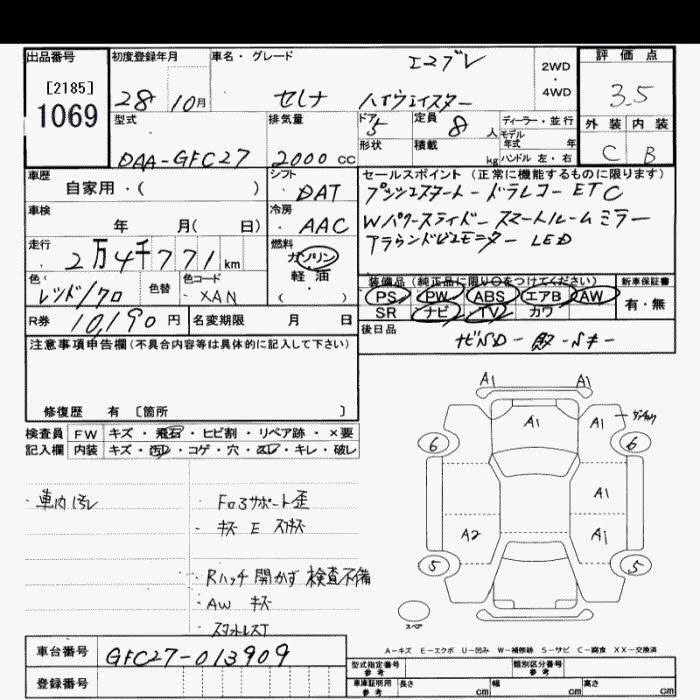 出品番号
[2185]
1069
初度登録年月
28 10月
車名・グレード
セレナ ハイウェイスター
2WD
・
4WD
評価点
3.5
外装 内装
C B
型式
DAA-GFC27
排気量
2000 CC
ドア
5
定員
8 人
形状
積載
kg
ディーラー・並行
モデル
年式 年
ハンドル 左・右
車歴
自家用・( )
シフト
DAT
車検
年 月( 日)
冷房
AAC
走行
2万4千771 km
燃料
ガソリン
軽油
( )
色
レッド/クロ
色替
色コード
XAN
R券 10,190 円
名変期限 月 日
セールスポイント (正常に機能するものに限ります)
プッシュスタート ドラレコー ETC
Wパワースライドー スマートルームミラー
アラウンドビューモニター LED
装備品 (純正品に限り○をつけてください)
PS PW ABS エアB AW
SR ナビ TV カワ
新車保証書
有・無
後日品
注意事項申告欄 (不具合内容等は具体的に記入して下さい)
修復歴 有 〔箇所 〕
検査員
記入欄
FW キズ・飛石・ヒビ割・リペア跡・×要
内装 キズ・汚レ・コゲ・穴・スレ・キレ・破レ
・車内汚レ
・Fロアサポート歪
・キズ E スリキズ
・Rハッチ開かず 検査不備
・AW キズ
・スタットレスT
A1 A1
A1 A1
6 6
A1
A2 A1
5 5
スペア
A-キズ E-エクボ U-凹み W-補修跡 S-サビ C-腐食 XX-交換済
車台番号 GFC27-013909
登録番号
型式指定番号
参考
類別区分番号
参考
車庫証明用
参考
長さ cm 幅 cm 高さ cm